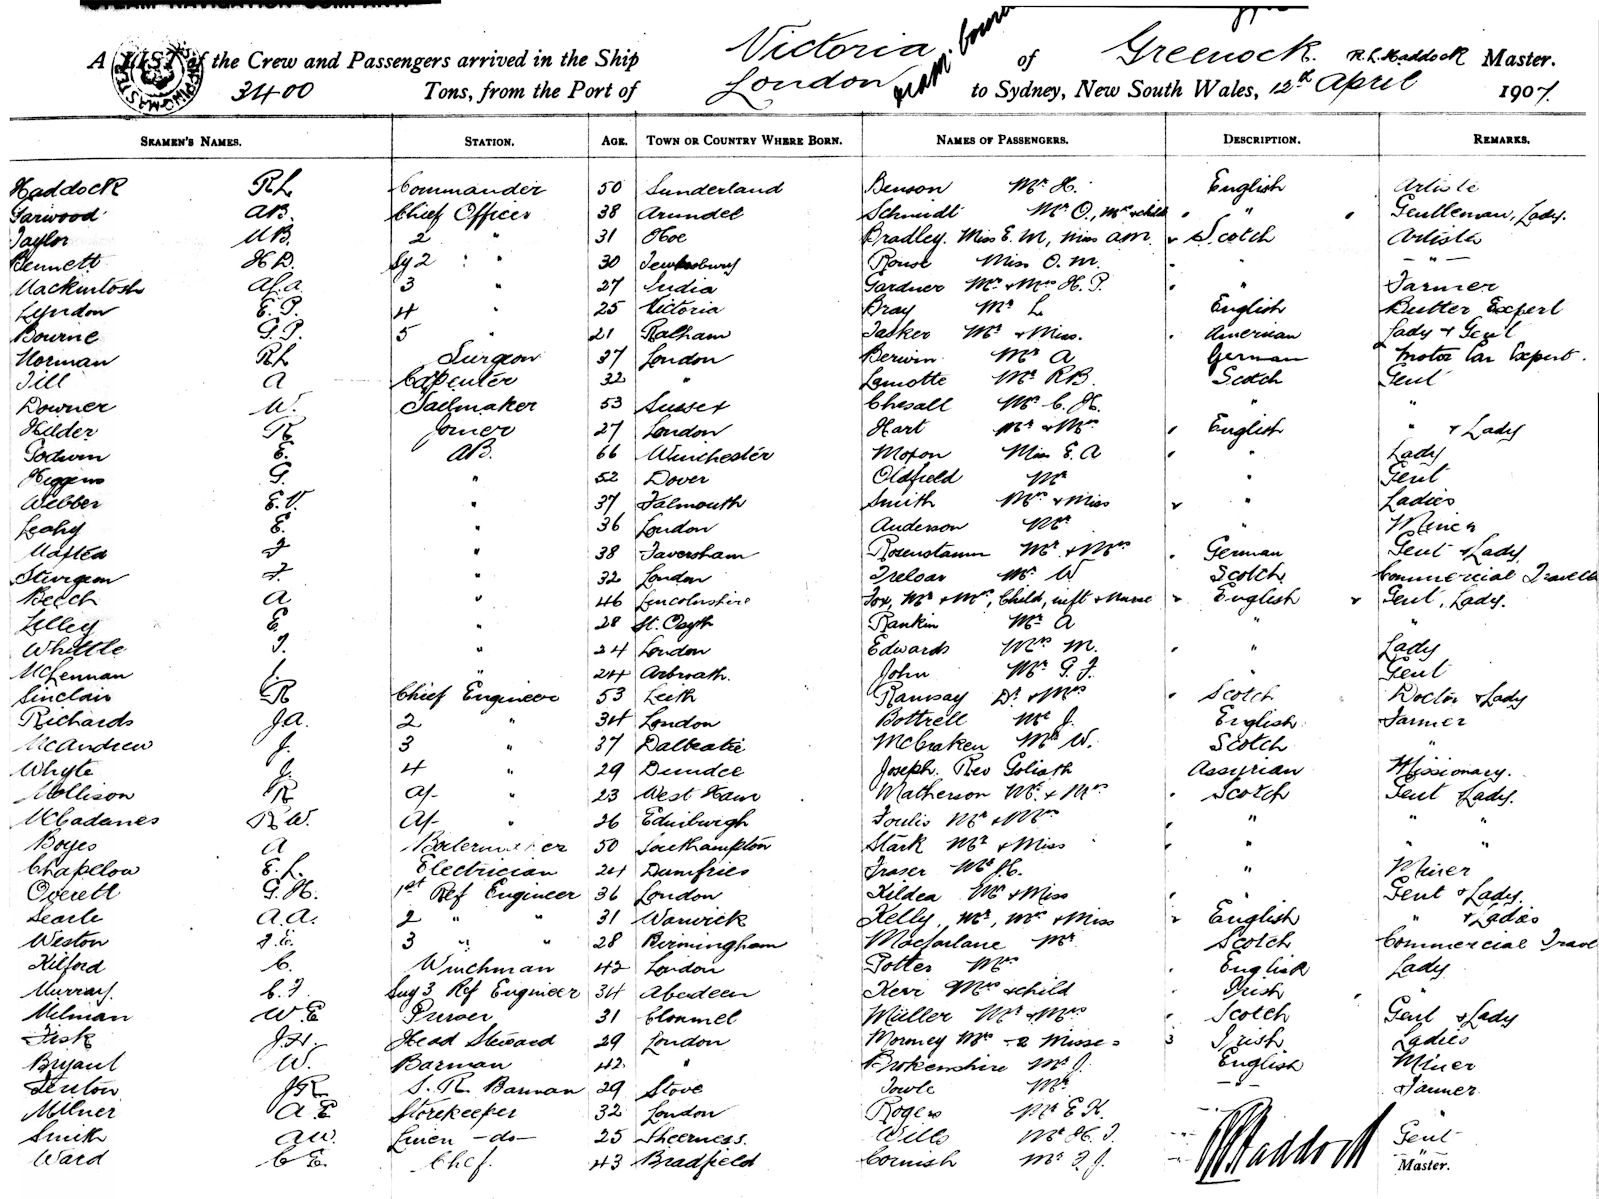 STEAM NAVIGATION COMPANY.
A LIST of the Crew and Passengers arrived in the Ship Victoria of Greenock. R.L. Haddock Master.
3400 Tons, from the Port of London to Sydney, New South Wales, 12th April 1907.
SEAMEN'S NAMES. STATION. AGE. TOWN OR COUNTRY WHERE BORN. NAMES OF PASSENGERS. DESCRIPTION. REMARKS.
Haddock RL Commander 50 Sunderland Benson Mr H. English Artiste
Garwood AB. Chief Officer 38 Arundel Schmidt Mr O., Mrs & child " Gentleman, Lady.
Taylor MB. 2 " 31 Hoe Bradley. Miss E. M, Miss AM. Scotch Artists
Bennett H.D. Sy 2 " " 30 Tewkesbury Rouse Miss O. M. " — " —
Mackintosh Al. A. 3 " 27 India Gardner Mr & Mrs H. P. " Farmer
Lyndon E. P. 4 " 25 Victoria Bray Mr L English Butter Expert
Bourne G. P. 5 " 21 Balham Tasker Mr & Miss. American Lady & Gent
Norman RL Surgeon 37 London Berwin Mr A German Motor Car Expert.
Till A Carpenter 32 " Lamotte Mr RB. Scotch Gent
Downer W. Sailmaker 53 Sussex Chesall Mr C. H. " "
Hilder R Joiner 27 London Hart Mr & Mrs English " & Lady
Godwin E. AB. 66 Winchester Moxon Miss E. A " Lady
Higgens G. " 52 Dover Oldfield Mr " Gent
Webber E.V. " 37 Falmouth Smith Mrs & Miss " Ladies
Leahy E. " 36 London Anderson Mr " Miner
Maxted F " 38 Faversham Rosenstamm Mr & Mrs German Gent & Lady
Sturgeon F. " 32 London Treloar Mr W Scotch Commercial Travell
Beech A " 46 Lincolnshire Fox, Mr & Mrs, Child, inft & Nurse English Gent, Lady.
Lilley E " 28 St. Osyth Rankin Mr A " "
Whittle T. " 24 London Edwards Mrs M. " Lady
McLennan " 24 Arbroath. John Mr G. F. Gent
Sinclair R Chief Engineer 53 Leith Ramsay Dr & Mrs Scotch Doctor & Lady
Richards J.A. 2 " 34 London Bottrell Mr J. English Farmer
McAndrew J. 3 " 37 Dalbeatie McCraken Mr W. Scotch "
Whyte J. 4 " 29 Dundee Joseph. Rev Goliath Assyrian Missionary.
Mollison R A/- " 23 West Ham Matherson Mr & Mrs Scotch Gent & Lady.
McCadanes RW. A/- " 26 Edinburgh Foulis Mr & Mrs " " "
Boyes A Boilermaker 50 Southampton Stark Mr & Miss " " "
Chapelow E. L. Electrician 24 Dumfries Fraser Mr H. " Miner
Overett G. H. 1st Ref Engineer 36 London Kildea Mr & Miss " Gent & Lady.
Searle A. A. 2 " " 31 Warwick Kelly, Mr, Mrs & Miss English " & Ladies
Weston F. E. 3 " " 28 Birmingham Macfarlane Mr Scotch Commercial Trave
Kilford C. Winchman 42 London Potter Mrs English Lady
Murray C. F. Suy 3 Ref Engineer 34 Aberdeen Kerr Mrs & child Irish "
Melman W. E Purser 31 Clonmel Müller Mr & Mrs Scotch Gent & Lady
Fisk J.H. Head Steward 29 London Morney Mrs - 2 Misses 3 Irish Ladies
Bryant W. Barman 42. " Brokenshire Mr J. English Miner
Fenton JR. S. R. Barman 29 Stove Towle Mr — " — Farmer
Milner A E Storekeeper 32 London Rogers Mr E K. "
Smith AW. Linen - do - 25 Sheerness. Wills Mr H. J. Gent
Ward C E. Chef. 43 Bradfield Cornish Mr F. J. RL Haddock Master.